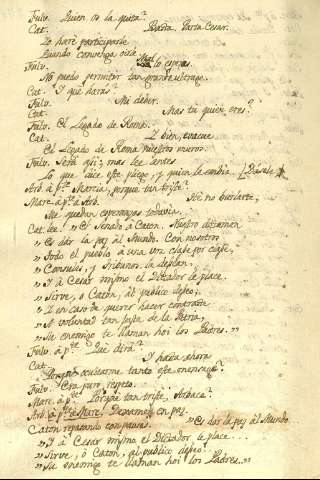 Fulv. Quien es la puerta?
Cat. Parta, Parta Cesar.
Lo haré participarle
Quando convenga oirle
Fulv. Mal lo esperas
No puedo permitir tan grande ultrage.
Cat. Y qué harás?
Fulv. Mi deber.
Cat. Mas tú quien eres?
Fulv. El Legado de Roma.
Cat. Y bien, evacue
El Legado de Roma nuestros muros.
Fulv. Será así; mas lee antes
Lo que dice este pliego, y quien le embia.
Arb. á pte. Marcia, porque tan triste?
Marc. á pte. á Arb. No burlarte,
Me quedan esperanzas todavia.
Cat. lee. "El Senado á Caton. Nuestro dictamen
"Es dar la paz al Mundo. Con nosotros
"Todo el pueblo á una voz clase por clase,
"Consules, y Tribunos la desean,
"Y á Cesar mismo el Dictador le place.
"Sirve, o Caton, al publico deseo;
"I en caso de querer hacer contraste
"A voluntad tan justa de la Patria,
"Su enemigo te llaman hoi los Padres."
Fulv. á pte. Qué dirá?
Cat. I hasta ahora
Porqué ocultarme tanto este mensage?
Fulv. Era puro respeto.
Marc. á pte. Porqué tan triste, Arbace?
Arb. á pte. á Marc. Dexame en paz.
Caton repasando con pausa. "Es dar la paz al Mundo
"Y á Cesar mismo el Dictador le place...
"Sirve, ó Caton, al publico deseo!
"Su enemigo te llaman hoi los Padres..."